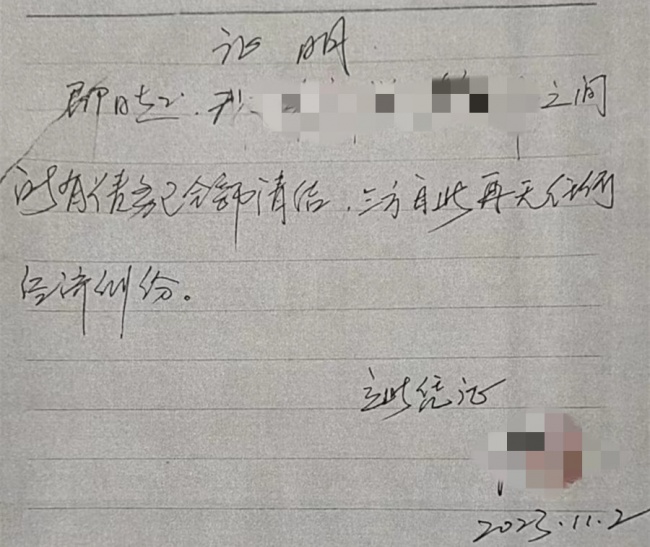 证明
即时起.我 之间
所有债务已全部清结.三方自此再无任何
经济纠纷。
立此凭证
2023.11.2